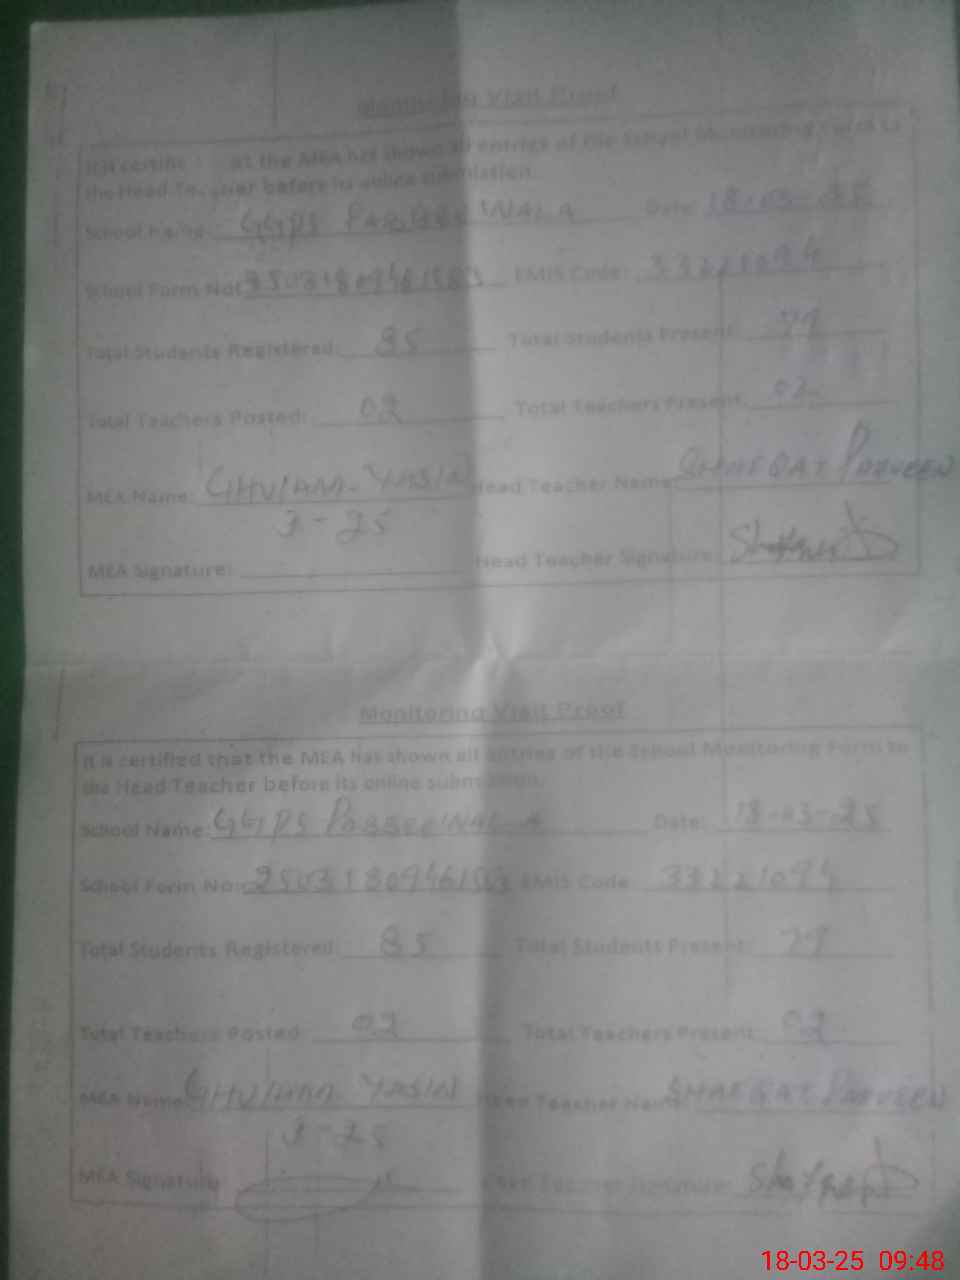 Monitoring Visit Proof
at the MEA has shown all entries of the School Monitoring Form to
the Head Teacher before its online submission.
School Name: GGPS Date: 18-03-25
School Form No: EMIS Code: 33221094
Total Students Registered: 85 Total Students Present:
Total Teachers Posted: 02 Total Teachers Present: 02
MEA Name: YASIN Head Teacher Name: SHAFQAT PARVEEN
3-25
MEA Signature: Head Teacher Signature:
Monitoring Visit Proof
It is certified that the MEA has shown all entries of the School Monitoring Form to
the Head Teacher before its online submission.
School Name: GGPS Date: 18-03-25
School Form No: EMIS Code: 33221094
Total Students Registered: 85 Total Students Present:
Total Teachers Posted: 02 Total Teachers Present: 02
MEA Name: YASIN Head Teacher Name: SHAFQAT PARVEEN
3-25
MEA Signature: Head Teacher Signature:
18-03-25 09:48